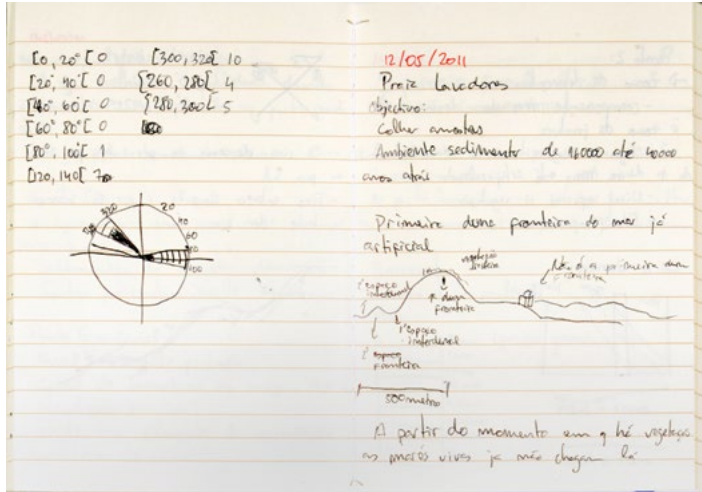 [0, 20°[ 0
[20°, 40°[ 0
[40°, 60°[ 0
[60°, 80°[ 0
[80°, 100°[ 1
[120, 140[ 7
[300, 320[ 10
[260, 280[ 4
[280, 300[ 5
320
20
40
60
80
100
12/05/2011
Praia Lavadores
objectivo:
Colher amostras
Ambiente sedimento de 160000 até 40000
anos atrás
Primeira duna fronteira do mar já
artificial
vegetação
1º espaço
interdunal
1ª duna
fronteira
Não é a primeira duna
fronteira
1º espaço
interdunal
espaço
fronteira
500 metro
A partir do momento em q há vegetação
as marés vivas ja não chegam lá